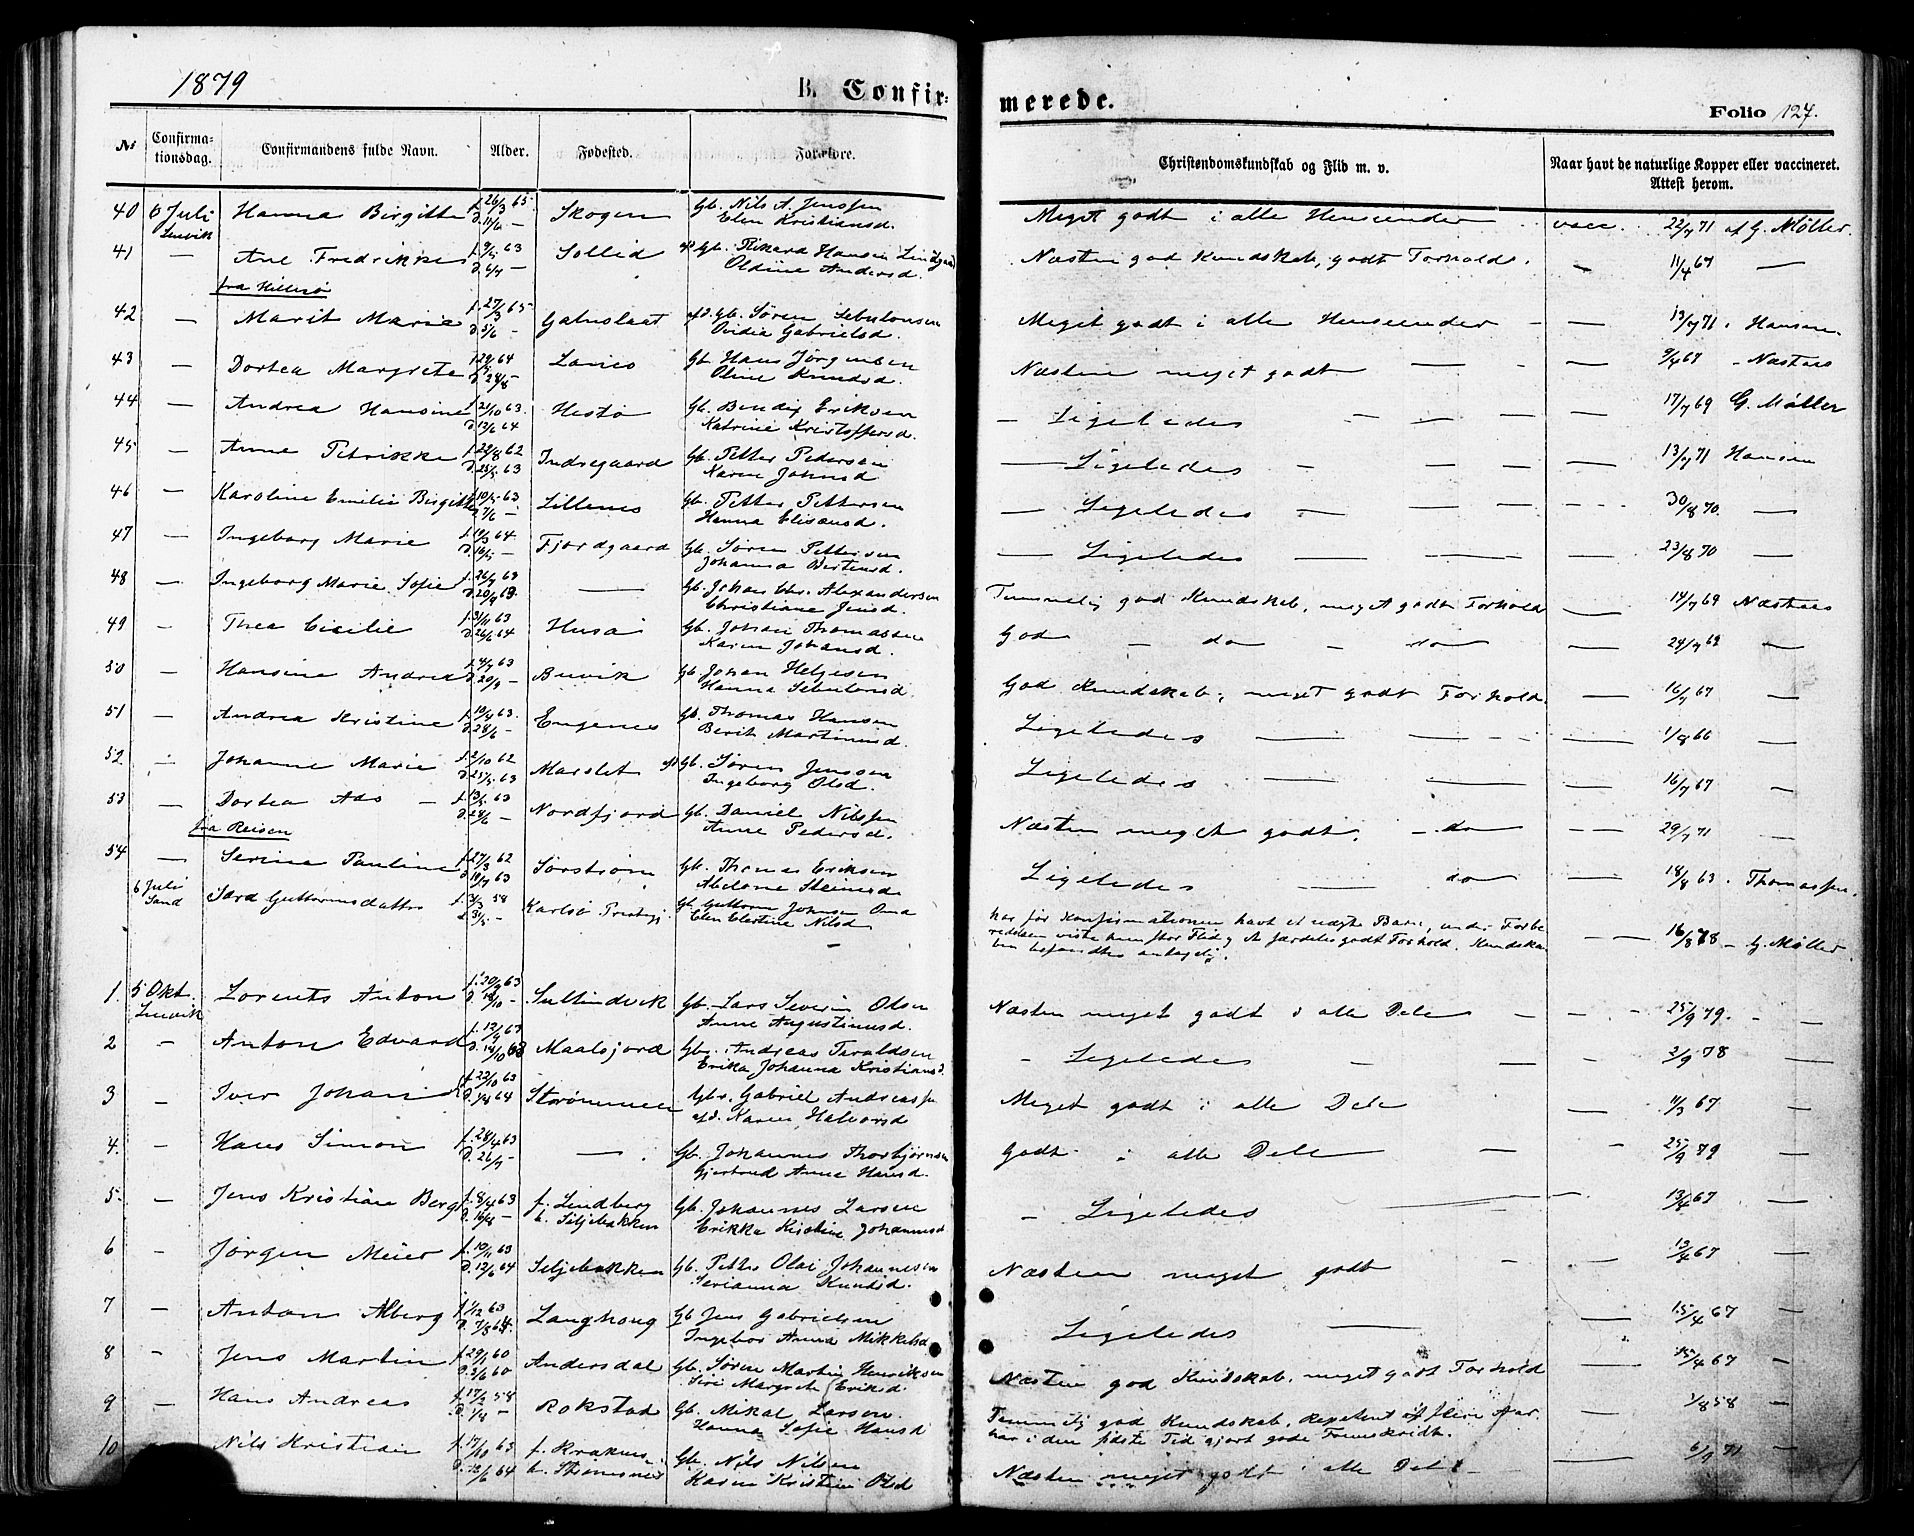 1879
B. Confirmerede.
Folio 127.
No Confirmationsdag. Confirmandens fulde Navn. Alder. Fødested. Forældre. Christendomskundskab og Flid m. v. Naar havt de naturlige Kopper eller vaccineret. Attest herom.
40 6 Juli Lenvik Hanna Birgitte f. 26/3 65 D. 11/6 — Skogen Gb. Nils A. Jenssen Elen Kristiansd. Meget godt i alle Henseender vacc. 22/7 71 af G. Møller.
41 — Ane Fredrikke f. 9/5 63 D. 6/7 — Sollid Gb. Rikard Hansen Oldine Andersd. Næsten god Kundskab, godt Forhold. — 11/4 67 —
fra Hillesø
42 — Marit Marie f. 27/3 65 D. 5/6 — Gabuslaat afd. Gb. Søren Sebulonsen Ovidia Gabrielsd. Meget godt i alle Henseender — — 13/7 71 Hansen
43 — Dortea Margrete 64 D. 28/8 — Lanes Gb. Hans Jørgensen Oline Knudsd. Næsten meget godt — — 9/4 67 — Næstaas
44 — Andrea Hansine f. 21/10 63. D. 12/6 64 Hestø Gb. Bendix Eriksen Katrine Kristoffersd. — Ligeledes — — — 17/7 69 G. Møller
45 — Anne Petrikke f. 22/8 62 D. 25/5 63 Indregaard Gb. Petter Pedersen Karen Johnsd — Ligeledes — — — 13/7 71 Hansen
46 — Karoline Emilie Birgitte f. 10/5 63 D. 7/6 — Lillenes Gb. Petter Pettersen Hanna Elisæusd. — Ligeledes — — 30/8 70. —
47 — Ingeborg Marie f. 19/3 64. D. 16/5 — Fjordgaard Gb. Søren Pettersen Johanna Bertensd. — Ligeledes — — — 23/8 70 —
48 — Ingeborg Marie Sofie f. 26/7 63 D. 20/9 63 — Gb. Johan Chr. Alexandersen Christiane Jensd. Temmelig god Kundskab, meget godt Forhold — 14/7 69 Næstaas
49 — Thea Cecilie f. 3/11 63 D. 26/6 64 Husøi Gb. Johan Thomassen Karen Johansd. God — do — do — 24/7 69 —
50 — Hansine Andrea f. 4/7 63 D. 20/9 — Buvik Gb. Johan Helgesen Hanna Sebulonsd. God Kundskab, meget godt Forhold. — 16/7 67 —
51 — Andrea Kristine f. 10/4 63. D. 28/6 — Engenes Gb. Thomas Hansen Berit Martinusd. Ligeledes — — — 1/8 66 —
52 — Johanne Marie f. 2/10 62 D. 25/5 63 Marslet Gb. Søren Jenssen Ingeborg Olsd. Ligeledes — — — 16/7 67 —
53 — Dortea Ads — f. 13/5 63 D. 28/6 — Nordfjord Gb. Daniel Nilssen Anne Pedersd. Næsten meget godt. — do — — 29/7 71 —
fra Reisen
54 — Serina Pauline f. 27/3 62 D. 19/7 63 Sørstrøm Gb. Thomas Eriksen Ligeledes — do — 18/8 63. Thomassen.
6 Juli Sand Sara Guttormsdatter f. 3/3 58 D. 3/5 — Karlsø Præstegj. Gb. Guttorm Johnsen Elen Elertine Nilsd har før Konfirmationen havt et uægte Barn, under Forberedelsen viste hun stor Flid og et særdeles godt Forhold. Kundskaben befandtes antagelig. — — 16/8 78 — G. Møller.
1. 5 Okt. Lenvik Lorents Anton f. 30/8 63 D. 18/10 — Sultindvik Gb. Lars Severin Olsen Anne Augustinusd. Næsten meget godt i alle Dele — — — 25/9 79. — —
2 — Anton Edvard f. 12/9 63 D. 14/10 63 Maalsjord Gb. Andreas Taraldsen Erika Johanna Kristiansd. — Ligeledes — — — 2/9 78 —
3 — Iver Johan f. 22/10 63 D. 1/8 64 Strømmen Gbr. Gabriel Andreass. afd. Karen Halvorsd Meget godt i alle Dele — 11/3 67 —
4. — Hans Simon f. 28/4 63 D. 26/7 — — Gb. Johannes Thorbjørnsen Gjertrud Anne Hansd. Godt i alle Dele — — 25/9 79 —
5. — Jens Kristian Berg f. 8/4 63 D. 16/8 — f. Lindberg b. Seljebakken Gb. Johannes Larsen Erikka Kirstine Johannesd — Ligeledes — — 13/4 67 —
6 — Jørgen Meier f. 10/11 63 D. 12/6 64 Seljebakken Gb. Petter Olai Johannesen Serianna Knudsd. Næsten meget godt — — 13/4 67 —
7 — Anton Alberg f. 1/12 63 D. 7/8 64 Langhoug Gb. Jens Gabrielsen Ingebor Anna Mikkelsd Ligeledes — — 15/4 67 —
8 — Jens Martin f. 29/1 60 D. 3/6 60 Andersdal Gb. Søren Martin Henriksen Siri Margrete Eriksd. Næsten god Kundskab, meget godt Forhold — 15/4 67 —
9 — Hans Andreas f. 17/2 58 D. 1/4 — Rokstad Gb. Mikal Larsen. Hanna Sofie Hansd Temmelig god Kundskab. Repetent af flere Aar. har i den sidste Tid gjort gode Fremskridt. 1/8 58 —
10 Nils Kristian f. 17/10 63 D. 12/6 64 f. Kraknes b. Gb. Nils Nilsen Karen Kristine Olsd Næsten meget godt i alle Dele — — 6/9 71 —